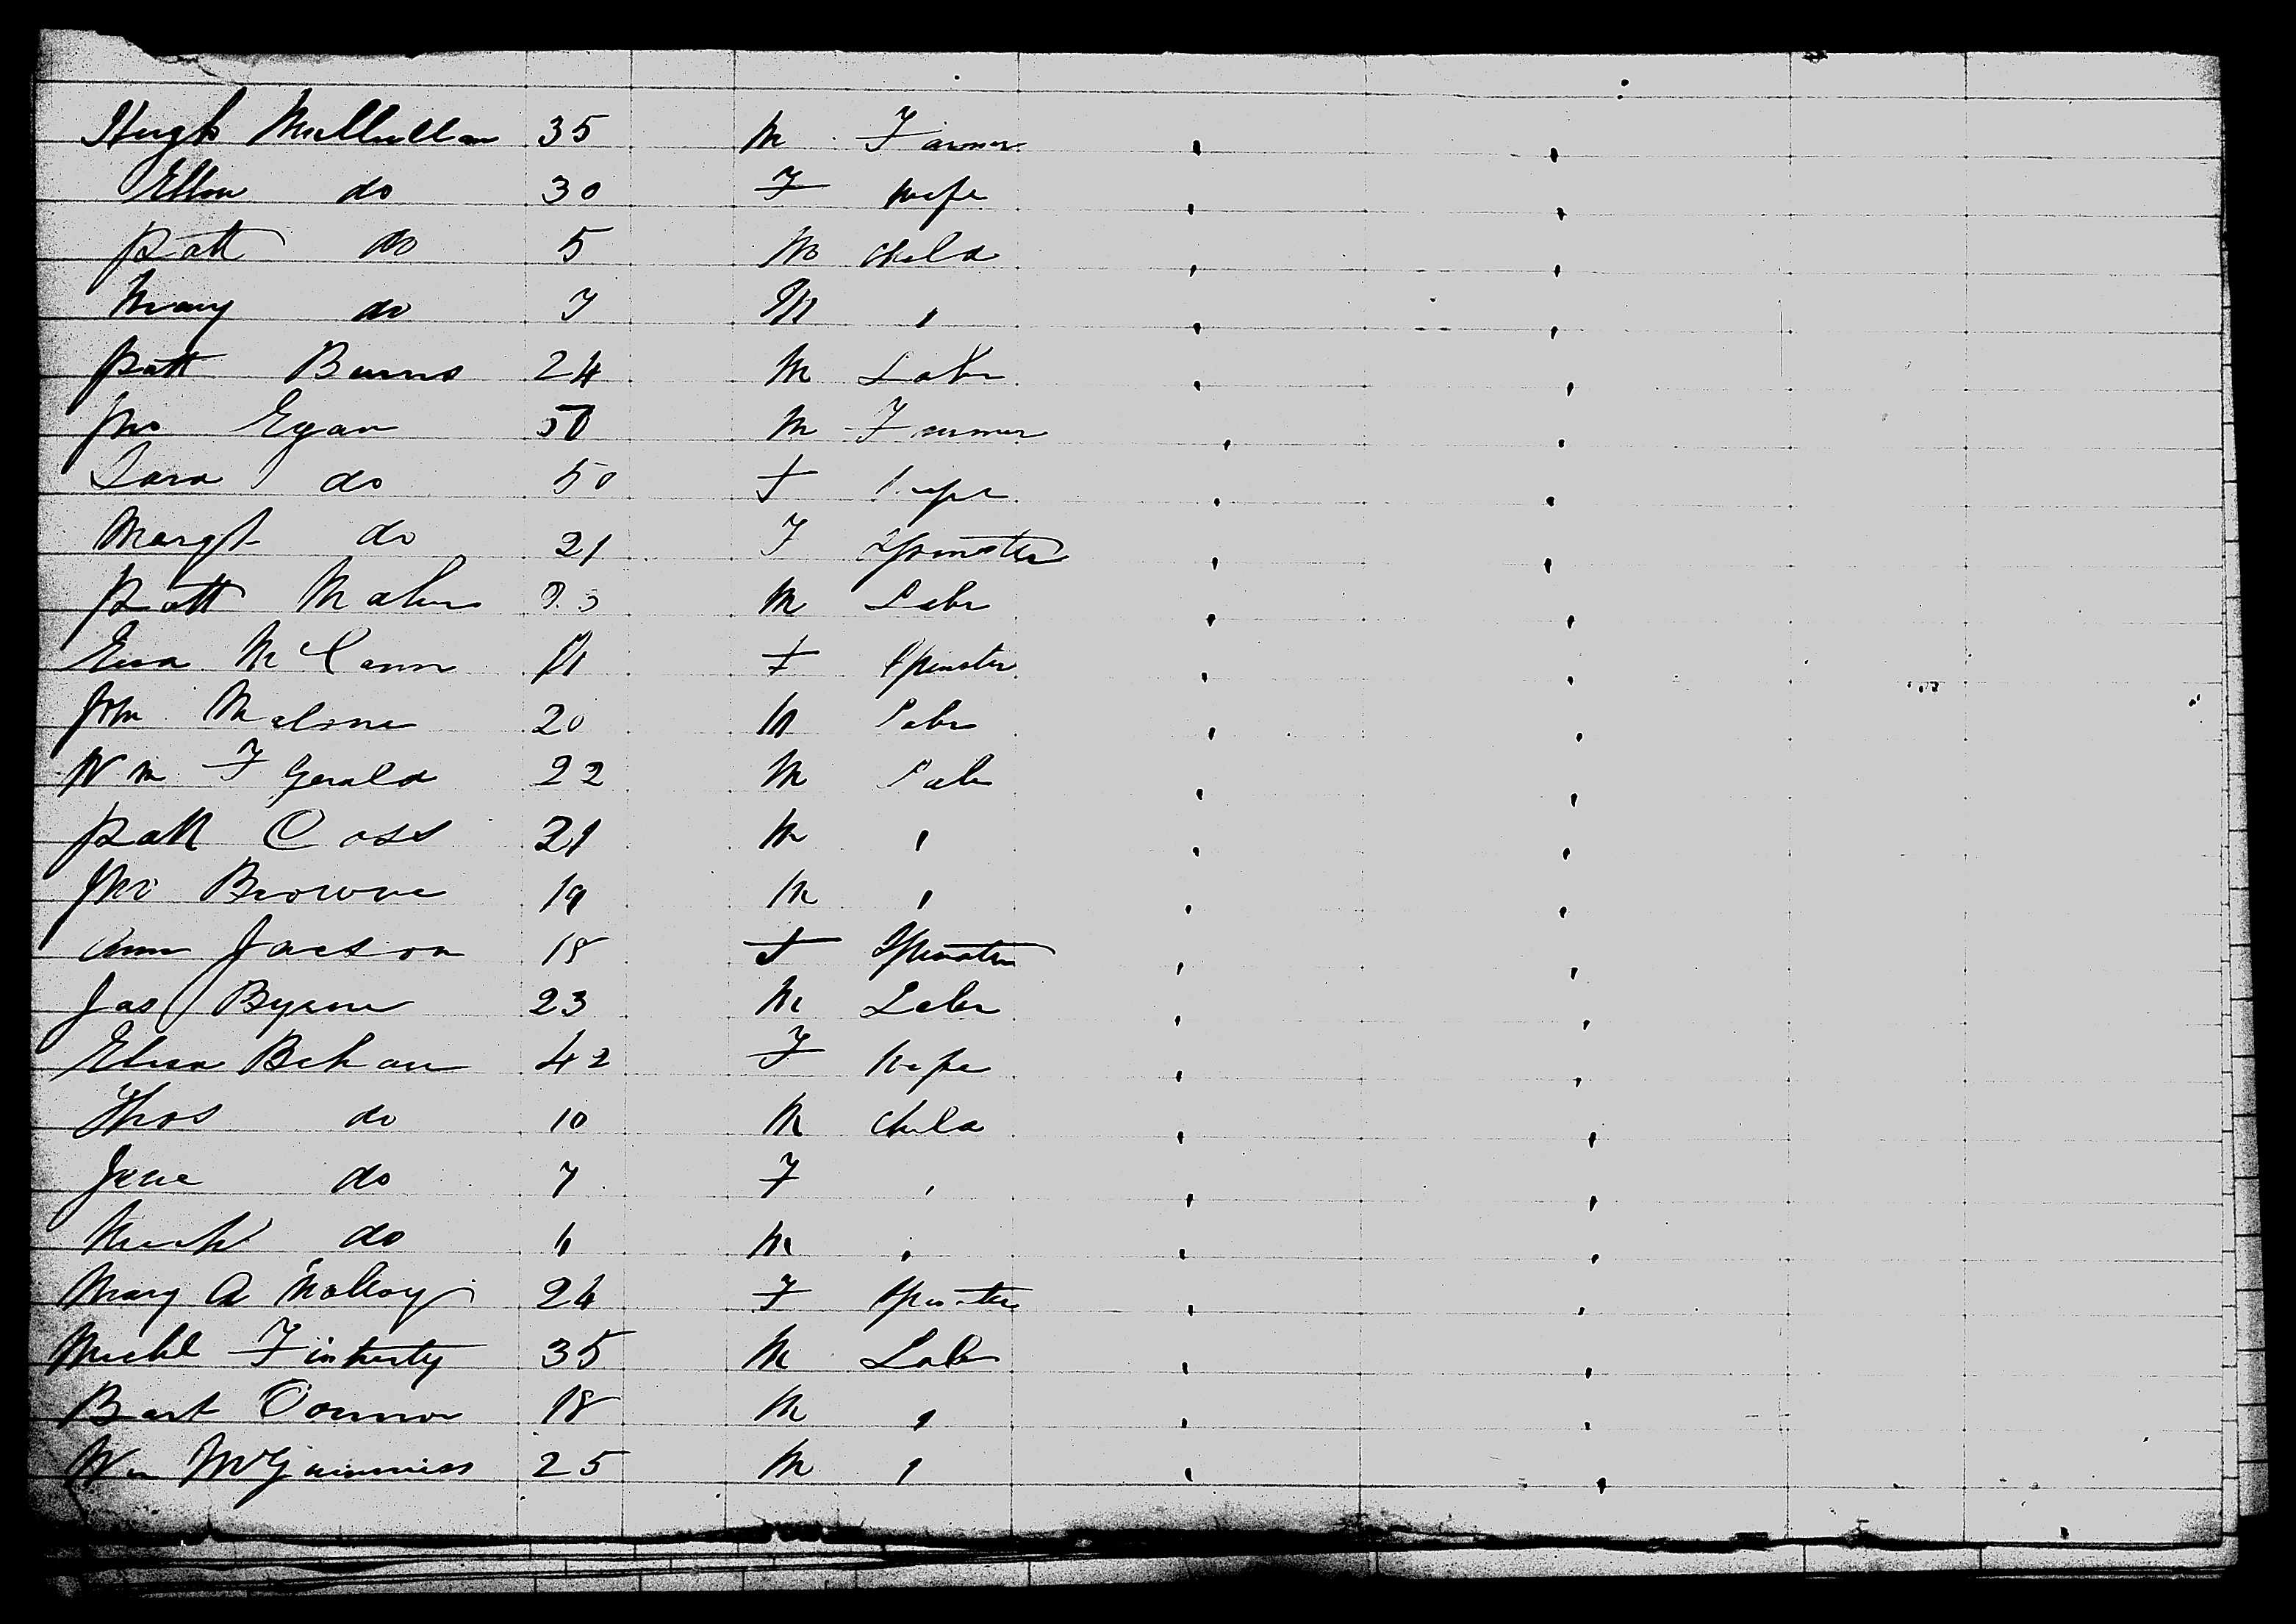 Hugh McMullan 35 M Farmer " "
Ellen do 30 F wife " "
Patt do 5 M child " "
Mary do 7 M " " "
Patt Burns 24 M Labr " "
Jno Egan 50 M Farmer " "
Sara do 50 F wife " "
Margt do 21 F Spinster " "
Patt Maher M Labr " "
Eliza McCann F Spinster " "
Jno Malone 20 M Labr " "
Wm F Gerald 22 M Labr " "
Patt Cass 21 M " " "
Jno Browne 19 M " " "
Ann Jackson 18 F Spinster " "
Jas Byrne 23 M Labr " "
Eliza Behan 42 F wife " "
Thos do 10 M child " "
Jane do 7 F " " "
Mich do 6 M " " "
Mary A Malloy 24 F Spinster " "
Michl Finherty 35 M Labr " "
Bart Connor 18 M " " "
Wm McGuinness 25 M " " "